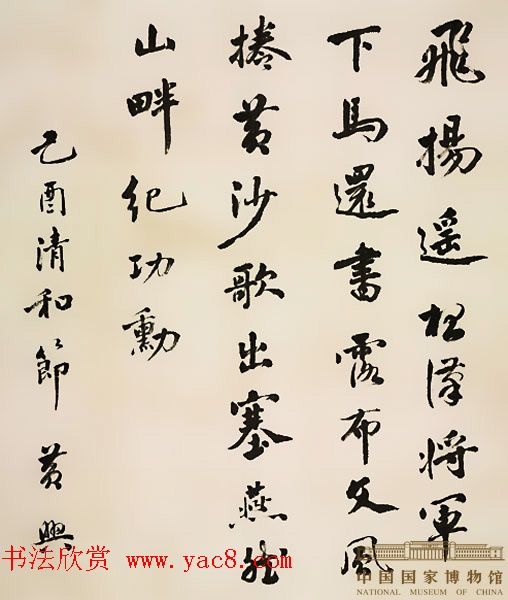 飛揚遥漢將軍
下馬還書露布文風
捲黃沙歌出塞燕然
山畔紀功勳
己酉清和節 黃興
书法欣赏 www.yac8.com
中国国家博物馆
NATIONAL MUSEUM OF CHINA